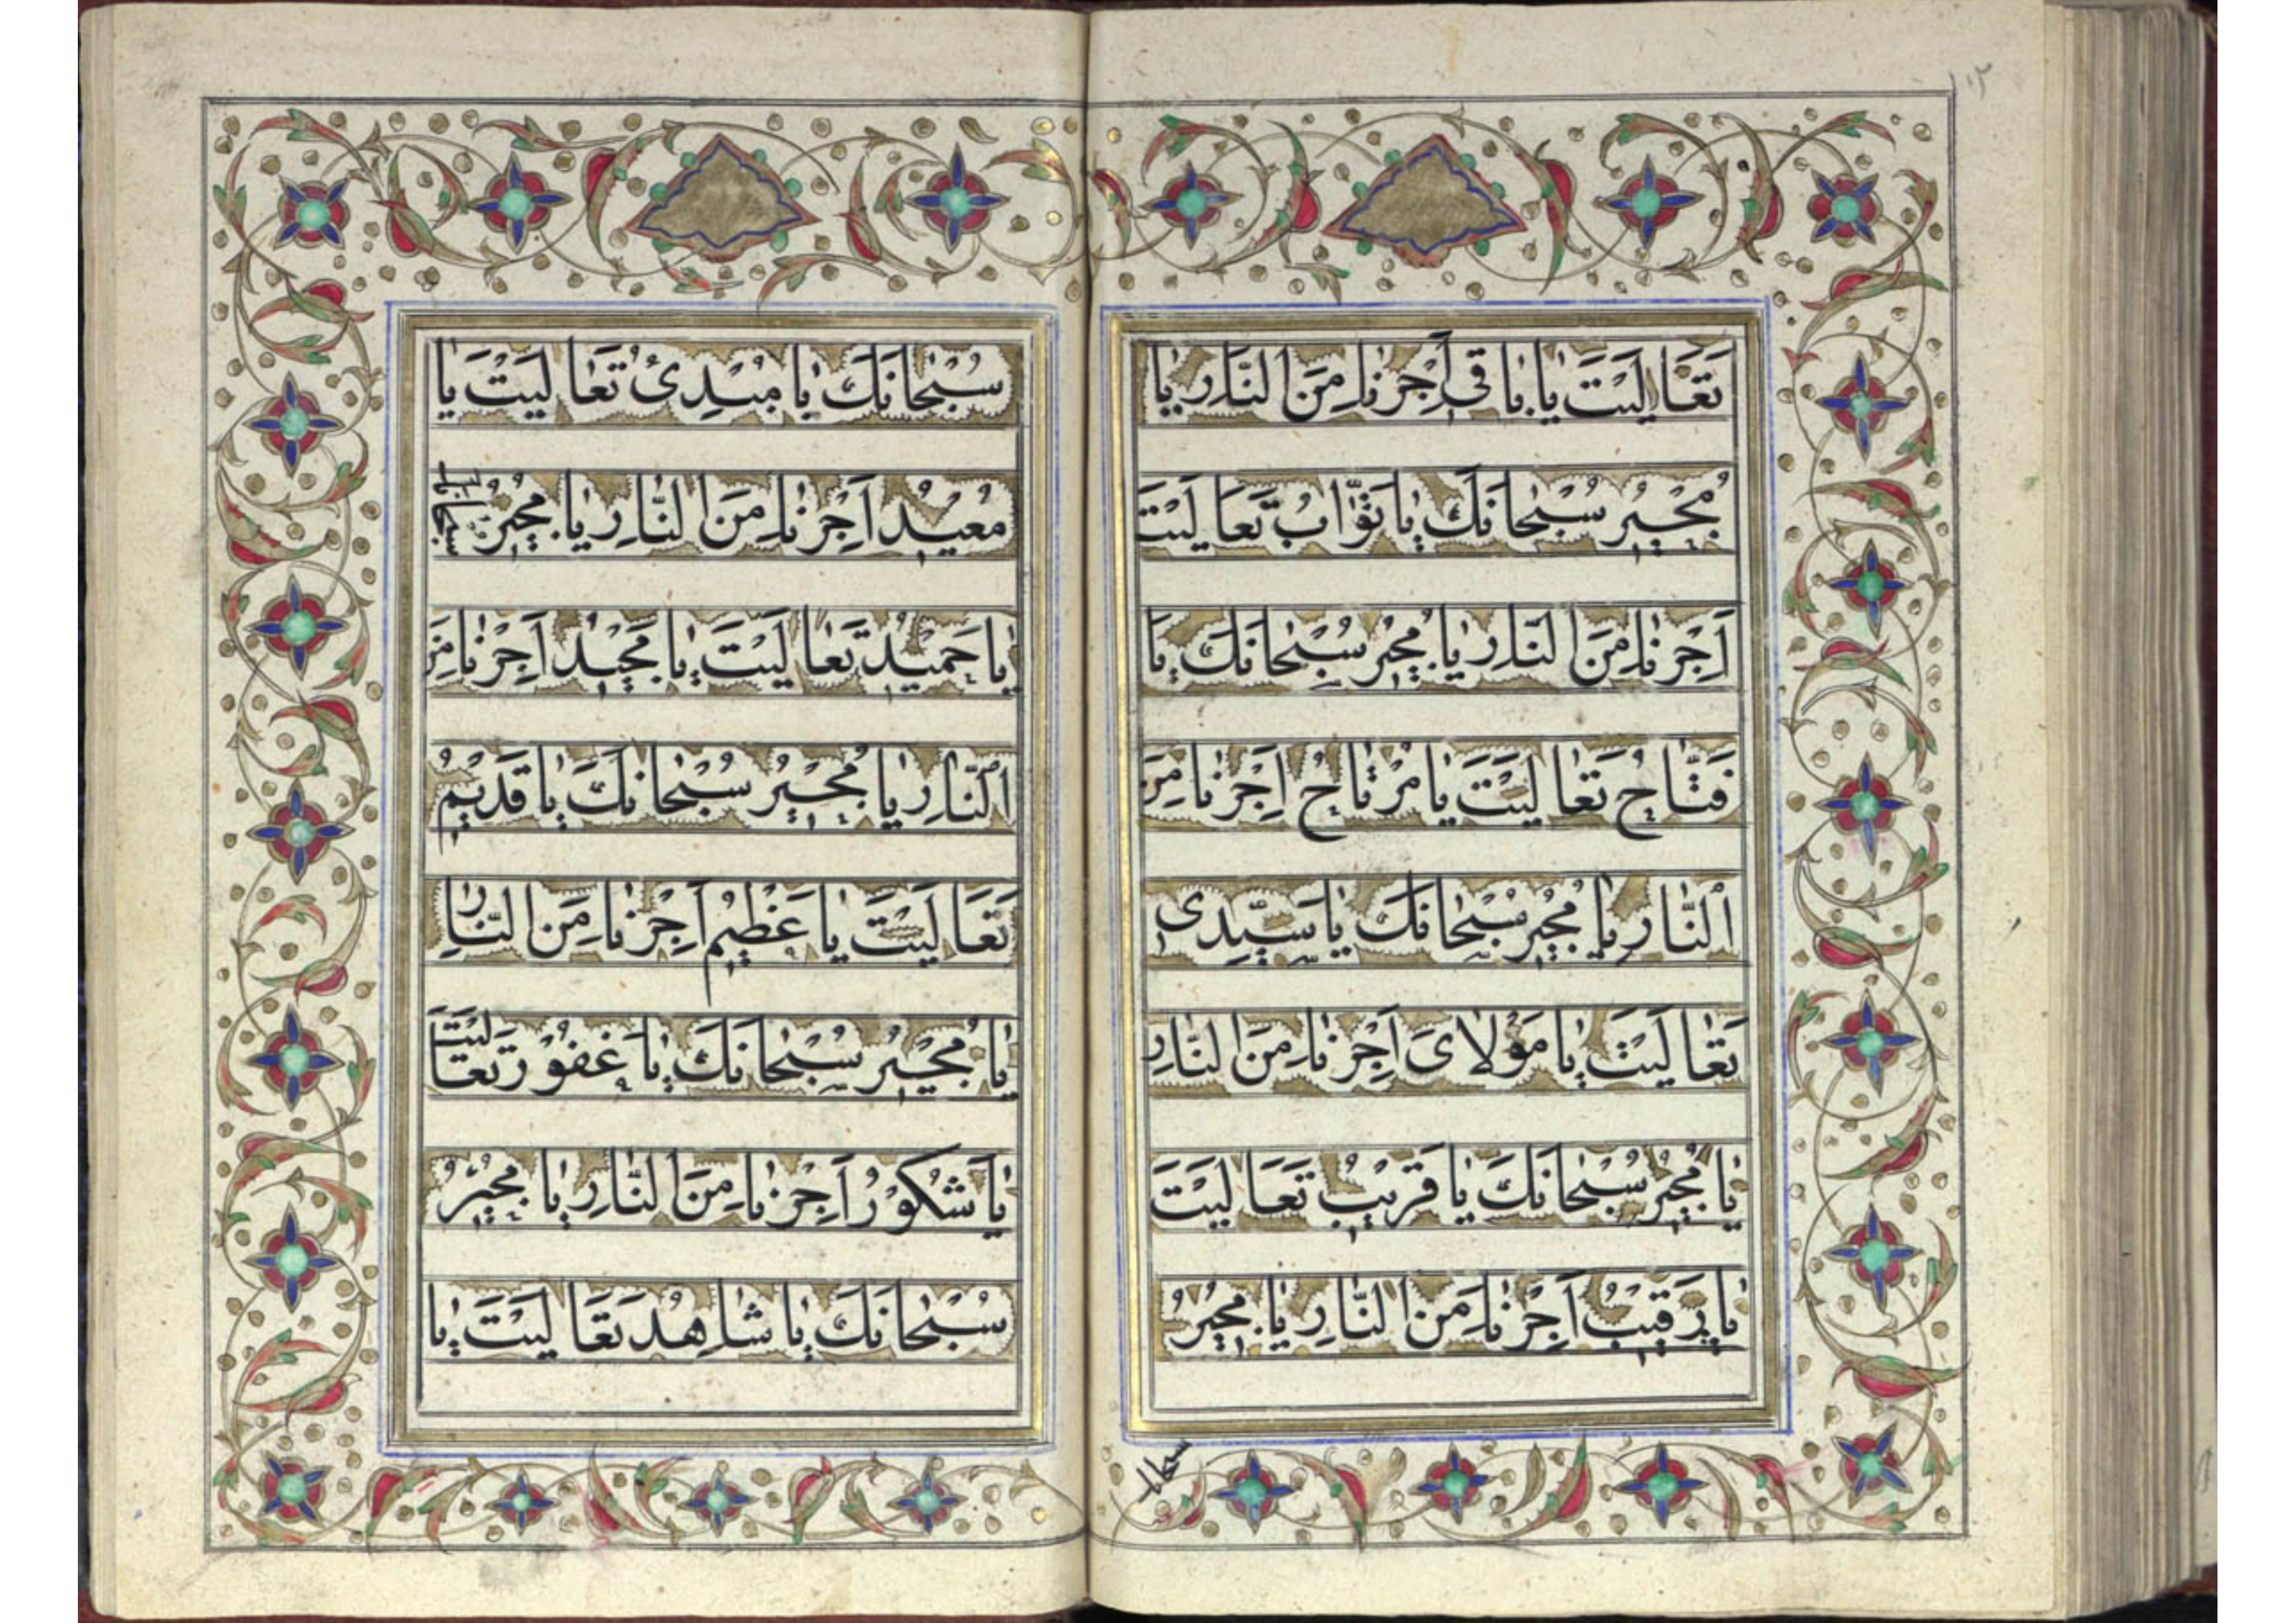 ١١٢
تَعَالَيْتَ يا باقى اَجِرْنا مِنَ النَّارِ يا
مُجْيرُ سُبْحانَكَ يا تَوّابُ تَعالَيْتَ
اَجِرْنا مِنَ النَّارِ يا مُجيرُ سُبْحانَكَ يا
فَتّاحُ تَعالَيْتَ يا مُرْتاحُ اَجِرْنا مِنَ
النَّارِ يا مُجيرُ سُبْحانَكَ يا سَيِّدى
تَعالَيْتَ يا مَوْلاىَ اَجِرْنا مِنَ النَّارِ
يا مُجيرُ سُبْحانَكَ يا قَريبُ تَعَالَيْتَ
يا رَقيبُ اَجِرْنا مِنَ النَّارِ يا مُجيرُ
سبحانك
سُبْحانَكَ يا مُبْدِئُ تَعالَيْتَ يا
مُعيْدُ اَجِرْنا مِنَ النَّارِ يا مُجيرُ سبحانك
يا حَميْدُ تَعالَيْتَ يا مَجيْدُ اَجِرْنا مِنَ
النَّارِ يا مُجيْرُ سُبْحانَكَ يا قَديْمُ
تَعَالَيْتَ يا عَظيْمُ اَجِرْنا مِنَ النَّارِ
يا مُجيْرُ سُبْحانَكَ يا غَفُوْرُ تَعالَيْتَ
يا شَكُوْرُ اَجِرْنا مِنَ النَّارِ يا مُجيْرُ
سُبْحانَكَ يا شاهِدُ تَعَالَيْتَ يا